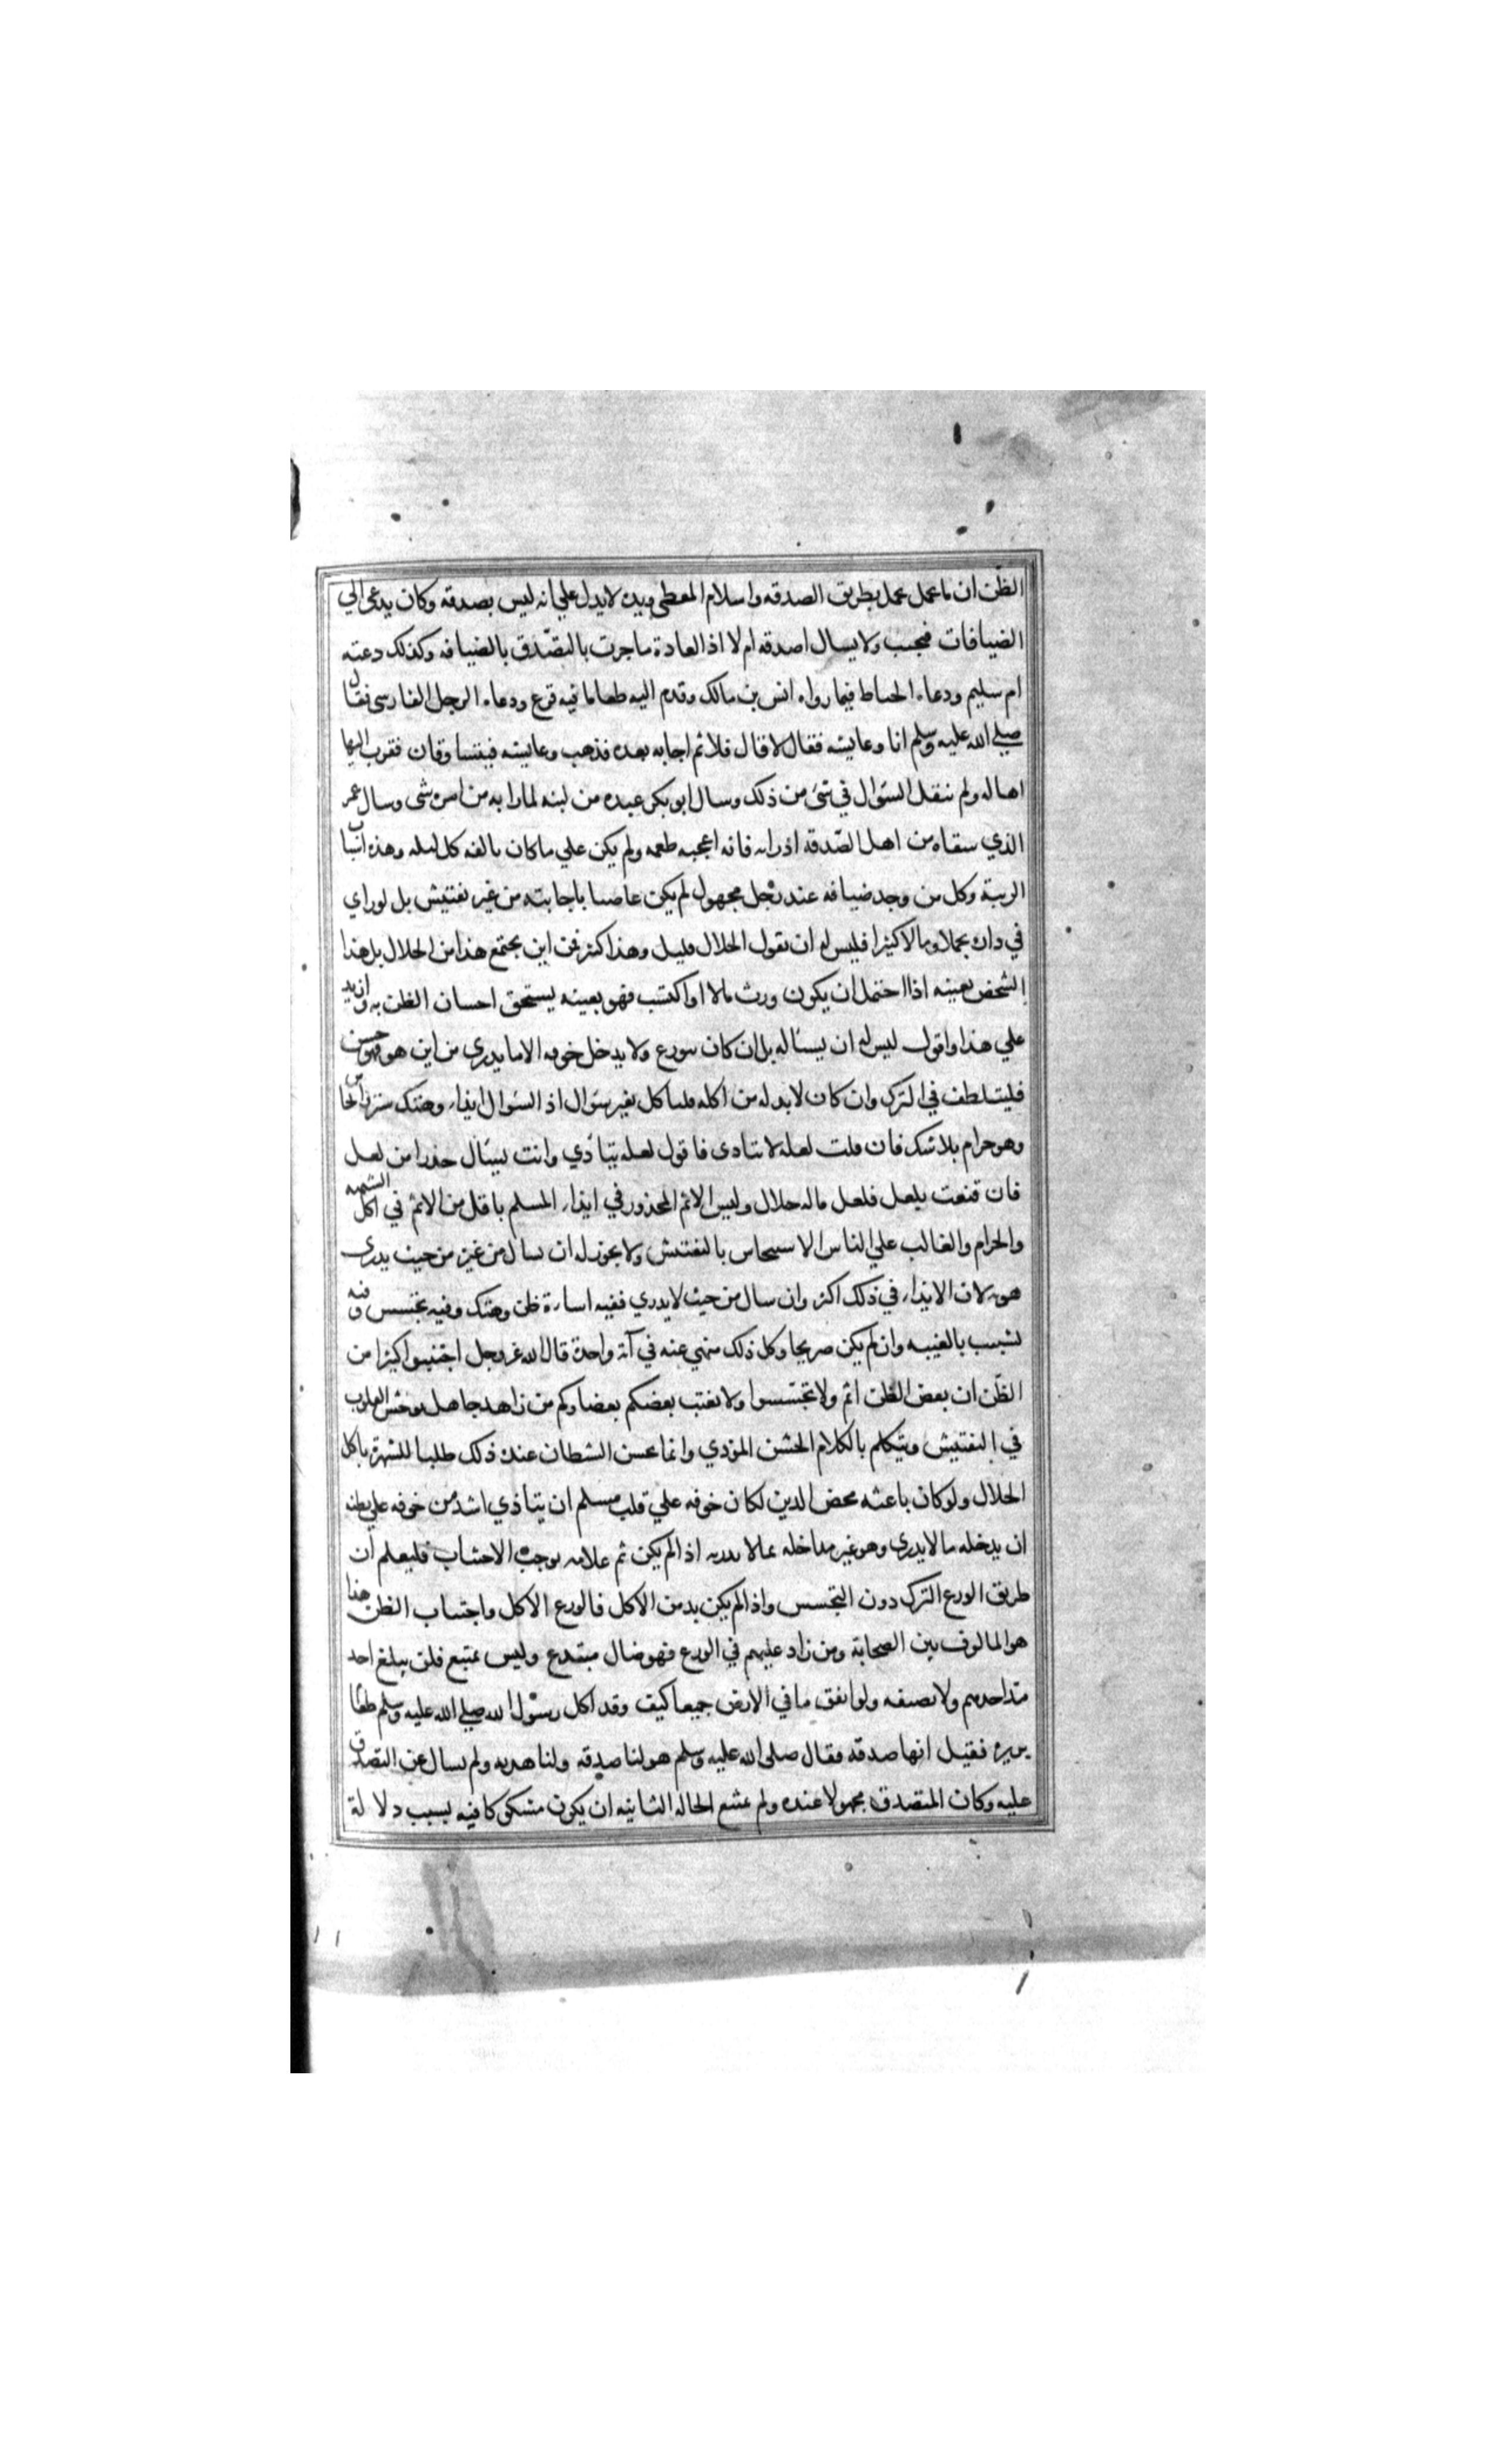 الظن ان ما عمل عمل بطريق الصدقه واسلام المعطي ويده لا يدل علي انه ليس بصدقه وكان يدعي الي
الضيافات فيجب ولا يسال اصدقه ام لا اذ العادة ما جرت بالتصدق بالضيافه وكذلك دعته
ام سليم ودعاه الخياط فيما رواه انس بن مالك وقدم اليه طعاما فيه قرع ودعاه الرجل الفارسي فقال
صلي الله عليه وسلم انا وعايشه فقال لا قال فلا ثم اجابه بعده فذهب وعايشه فتساوقان فقرب اليهما
اهاله ولم ينقل السؤال في شئ من ذلك وسال ابو بكر عبده من لبنه لما رابه من امره شي وسال عمر
الذي سقاه من اهل الصدقه اذ رابه فانه اعجبه طعمه ولم يكن علي ما كان يالفه كل ليله وهذه اسباب
الريبة وكل من وجد ضيافه عند رجل مجهول لم يكن عاصيا باجابته من غير تفتيش بل لو راي
في داره تجملا ومالا كثيرا فليس له ان يقول الحلال قليل وهذا كثير فمن اين يجتمع هذا من الحلال بل هذا
الشخص بعينه اذا احتمل ان يكون ورث مالا او اكتسب فهو بعينه يستحق احسان الظن به وازيد
علي هذا واقول ليس له ان يسئاله بل ان كان يتورع ولا يدخل جوفه الا ما يدري من اين هو فهو حسن
فليتلطف في الترك وان كان لا بد له من اكله فلياكل بغير سؤال اذ السؤال ايذاء وهتك ستر وايحاش
وهو حرام بلا شك فان قلت لعله لا يتاذي فاقول لعله يتاذي وانت تسال حذرا من لعل
فان قنعت بلعل فلعل ماله حلال وليس الاثم المحذور في ايذاء المسلم باقل من الاثم في اكل الشبهه
والحرام والغالب علي الناس الاستيحاش بالتفتيش ولا يجوز له ان يسال من غيره من حيث يدري
هو به لان الايذاء في ذلك اكثر وان سال من حيث لا يدري ففيه اساءة ظن وهتك وفيه تجسس وفيه
تشبب بالغيبه وان لم يكن صريحا وكل ذلك منهي عنه في آية واحدة قال الله عز وجل اجتنبوا كثيرا من
الظن ان بعض الظن اثم ولا تجسسوا ولا يغتب بعضكم بعضا وكم من زاهد جاهل يوحش القلوب
في التفتيش ويتكلم بالكلام الخشن الموذي وانما يحسن الشيطان عنده ذلك طلبا للشهرة باكل
الحلال ولو كان باعثه محض الدين لكان خوفه علي قلب مسلم ان يتاذي اشد من خوفه علي بطنه
ان يدخله ما لا يدري وهو غير مداخله بما لا يدريه اذ لم يكن ثم علامه توجب الاجتناب فليعلم ان
طريق الورع الترك دون التجسس واذا لم يكن بد من الاكل فالورع الاكل واحتساب الظن هذا
هو المالوف بين الصحابة ومن زاد عليهم في الورع فهو ضال مبتدع وليس بمتبع فلن يبلغ احد
مد احدهم ولا نصيفه ولو انفق ما في الارض جميعا كيف وقد اكل رسول الله صلي الله عليه وسلم طعام
بريره فقيل انها صدقه فقال صلي الله عليه وسلم هو لنا صدقه ولنا هديه ولم يسال عن التصدق
عليه وكان المتصدق مجهولا عنده ولم يمتنع الحاله الثانيه ان يكون مشكوكا فيه بسبب دلالة